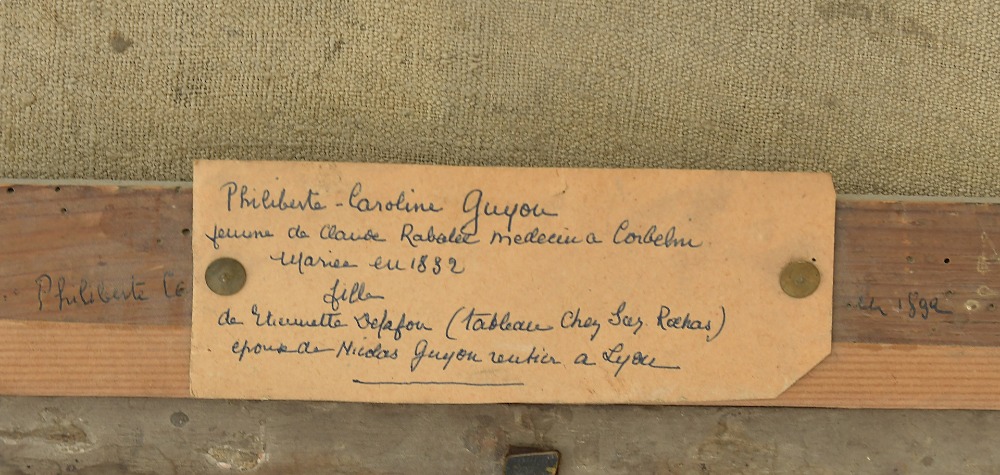 Philiberte-Caroline Guyon
femme de Claude Rabatel medecin a Corbelin
Mariee en 1832
fille
de Etiennette Delafon (tableau Chez Rochas)
epouse de Nicolas Guyon rentier a Lyon
Philiberte Ca
en 1832